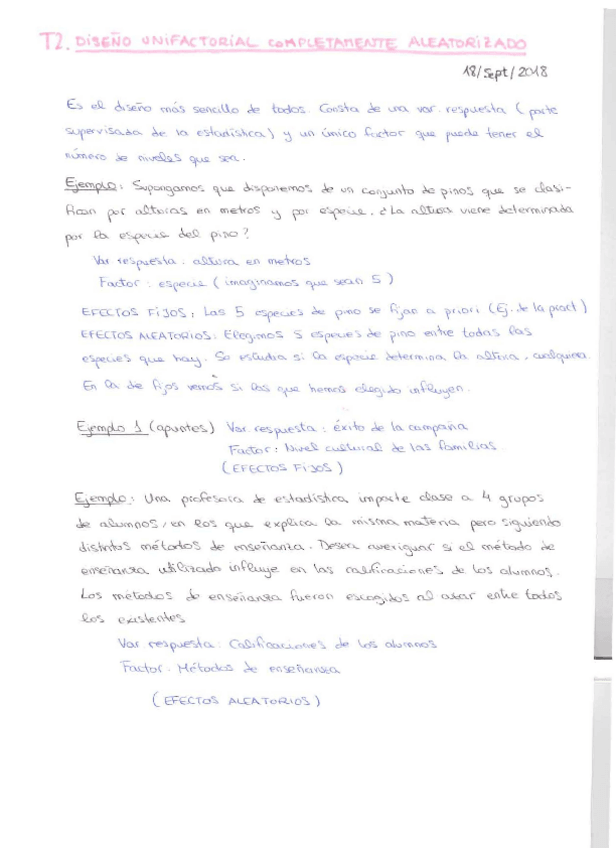 T2. DISEÑO UNIFACTORIAL COMPLETAMENTE ALEATORIZADO
18/Sept/2018
Es el diseño más sencillo de todos. Consta de una var. respuesta (parte
supervisada de la estadística) y un único factor que puede tener el
número de niveles que sea.
Ejemplo: Supongamos que disponemos de un conjunto de pinos que se clasi-
fican por alturas en metros y por especie. ¿La altura viene determinada
por la especie del pino?
Var respuesta: altura en metros
Factor: especie (imaginamos que sean 5)
EFECTOS FIJOS: Las 5 especies de pino se fijan a priori (Ej. de la pract)
EFECTOS ALEATORIOS: Elegimos 5 especies de pino entre todas las
especies que hay. Se estudia si la especie determina la altura, cualquiera.
En la de fijos vemos si las que hemos elegido influyen.
Ejemplo 1 (apuntes) Var. respuesta: éxito de la campaña
Factor: Nivel cultural de las familias.
(EFECTOS FIJOS)
Ejemplo: Una profesora de estadística imparte clase a 4 grupos
de alumnos, en los que explica la misma materia pero siguiendo
distintos métodos de enseñanza. Desea averiguar si el método de
enseñanza utilizado influye en las calificaciones de los alumnos.
Los métodos de enseñanza fueron escogidos al azar entre todos
los existentes
Var respuesta: Calificaciones de los alumnos
Factor: Métodos de enseñanza
(EFECTOS ALEATORIOS)